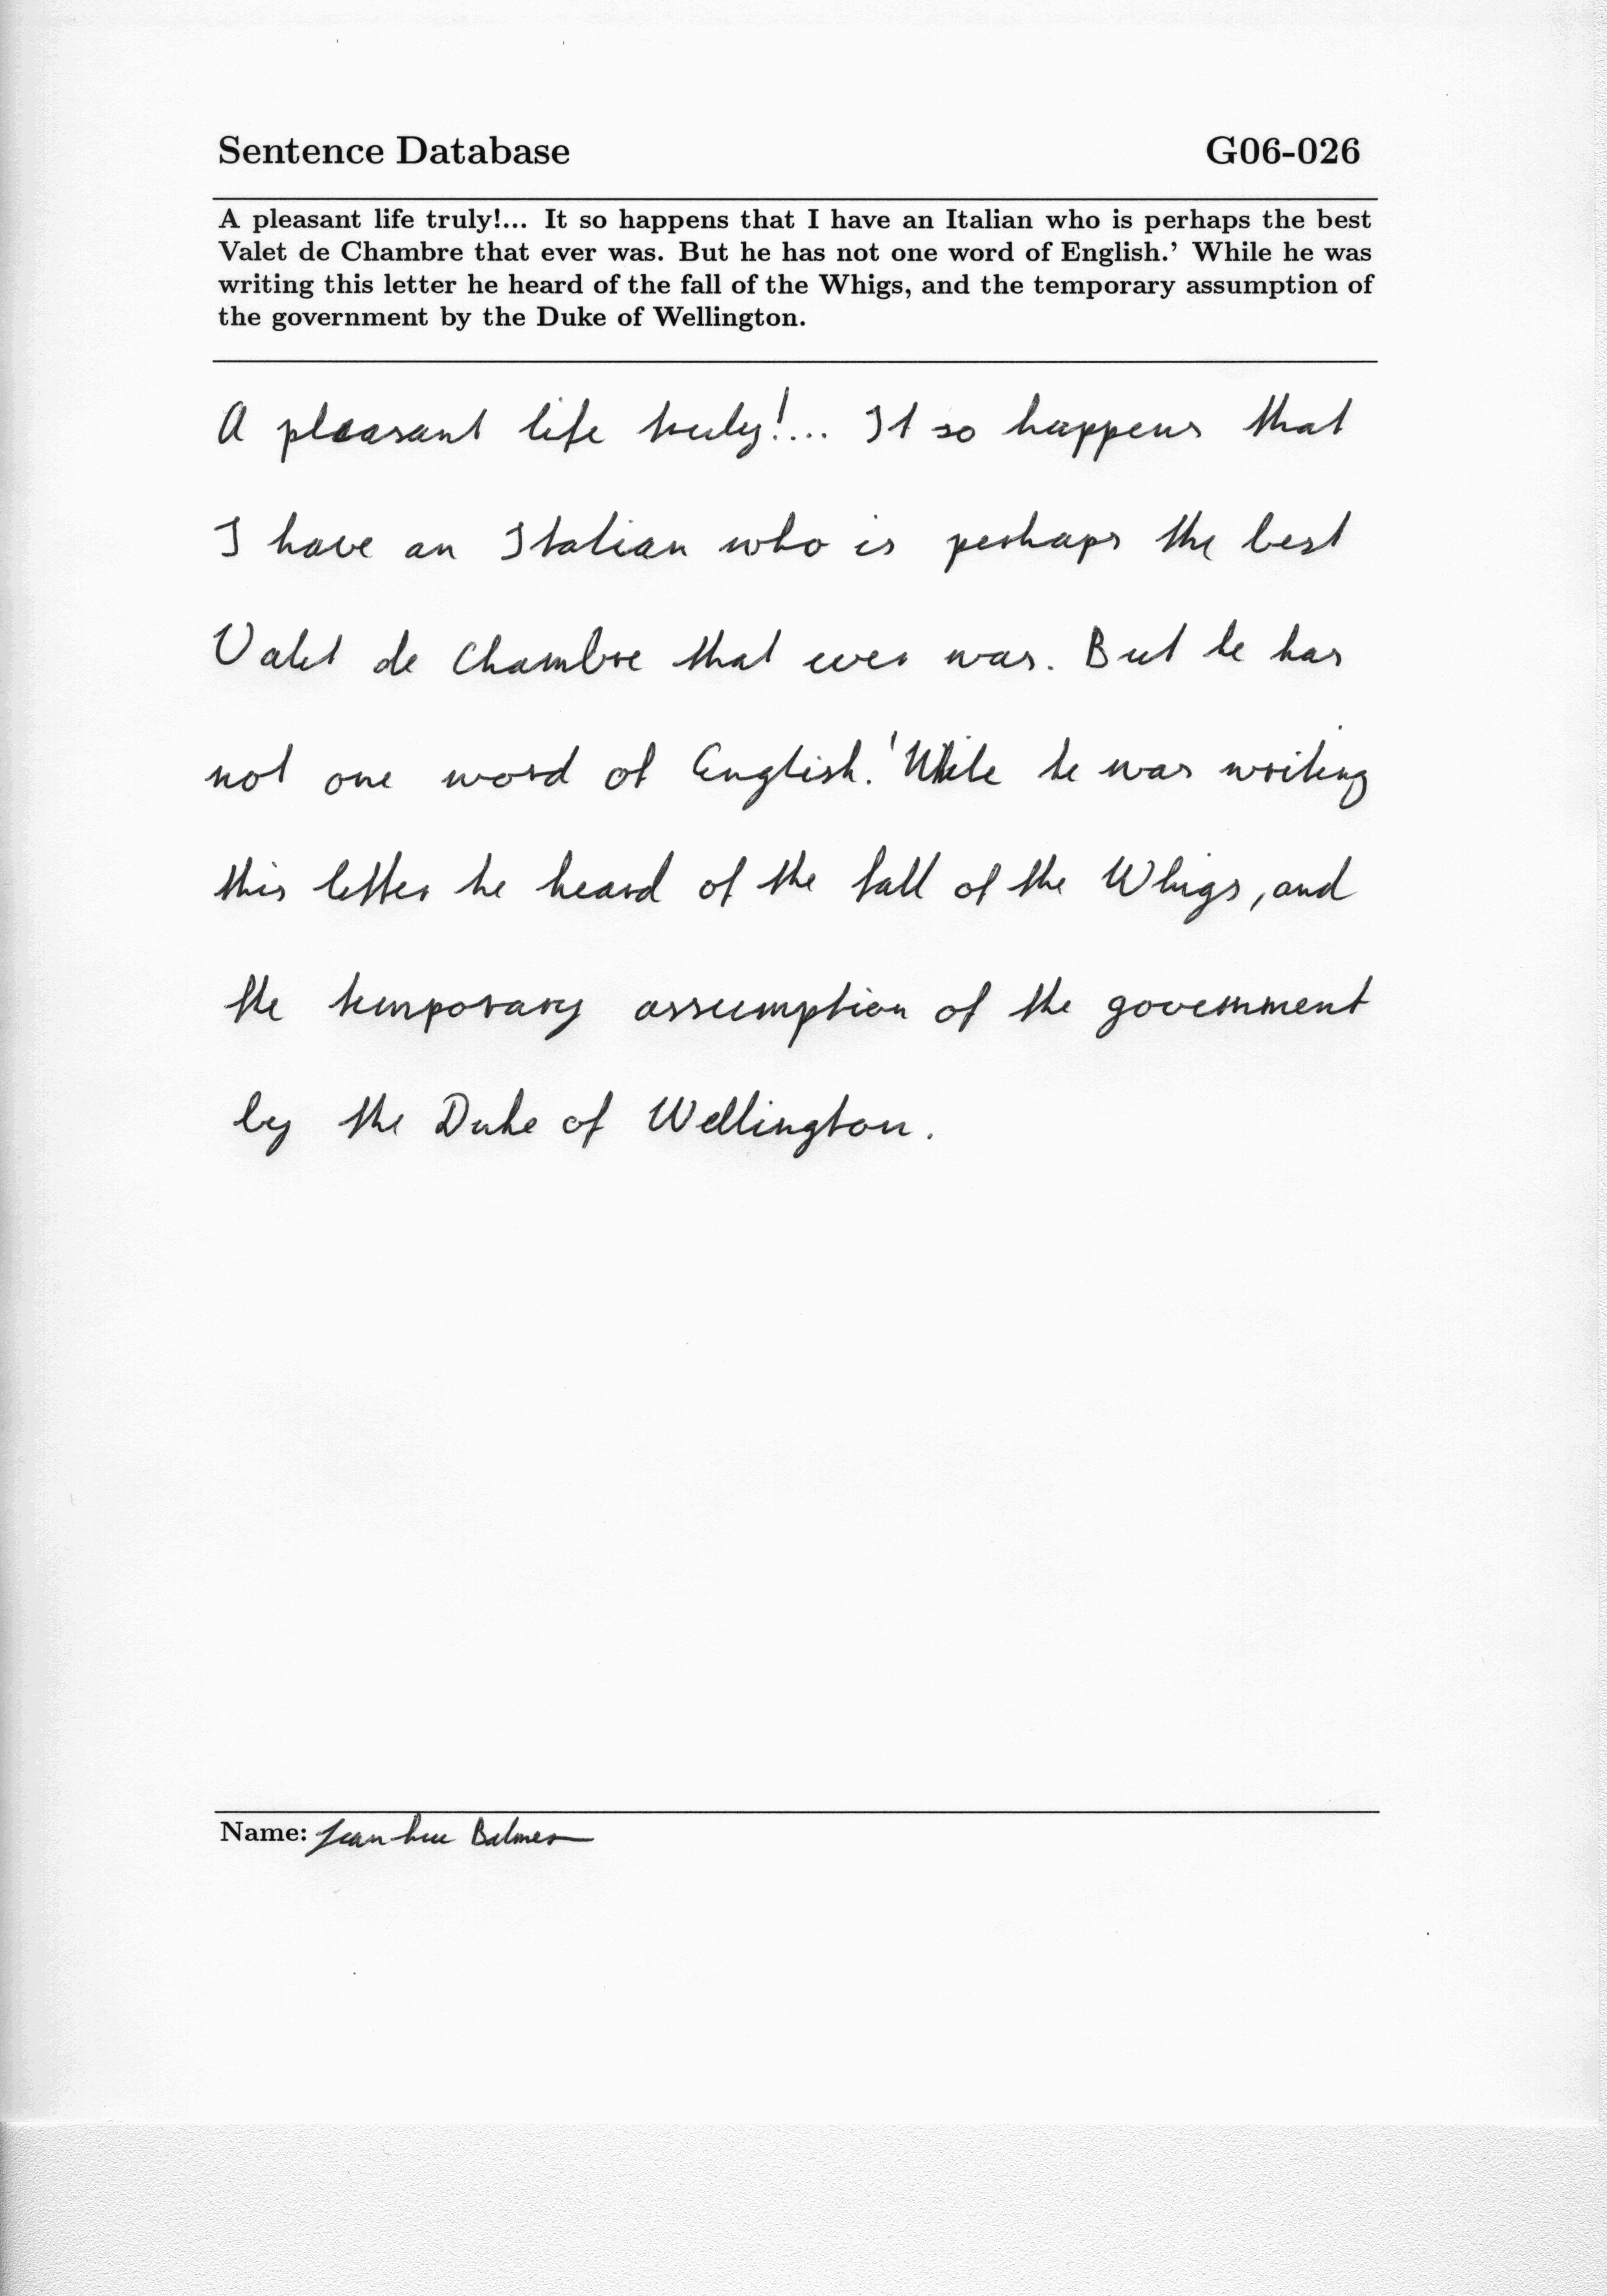 Sentence Database G06-026
A pleasant life truly!... It so happens that I have an Italian who is perhaps the best
Valet de Chambre that ever was. But he has not one word of English.' While he was
writing this letter he heard of the fall of the Whigs, and the temporary assumption of
the government by the Duke of Wellington.
A pleasant life truly!... It so happens that
I have an Italian who is perhaps the best
Valet de Chambre that ever was. But he has
not one word of English.' While he was writing
this letter he heard of the fall of the Whigs, and
the temporary assumption of the government
by the Duke of Wellington.
Name: Jean-Luc Balmer